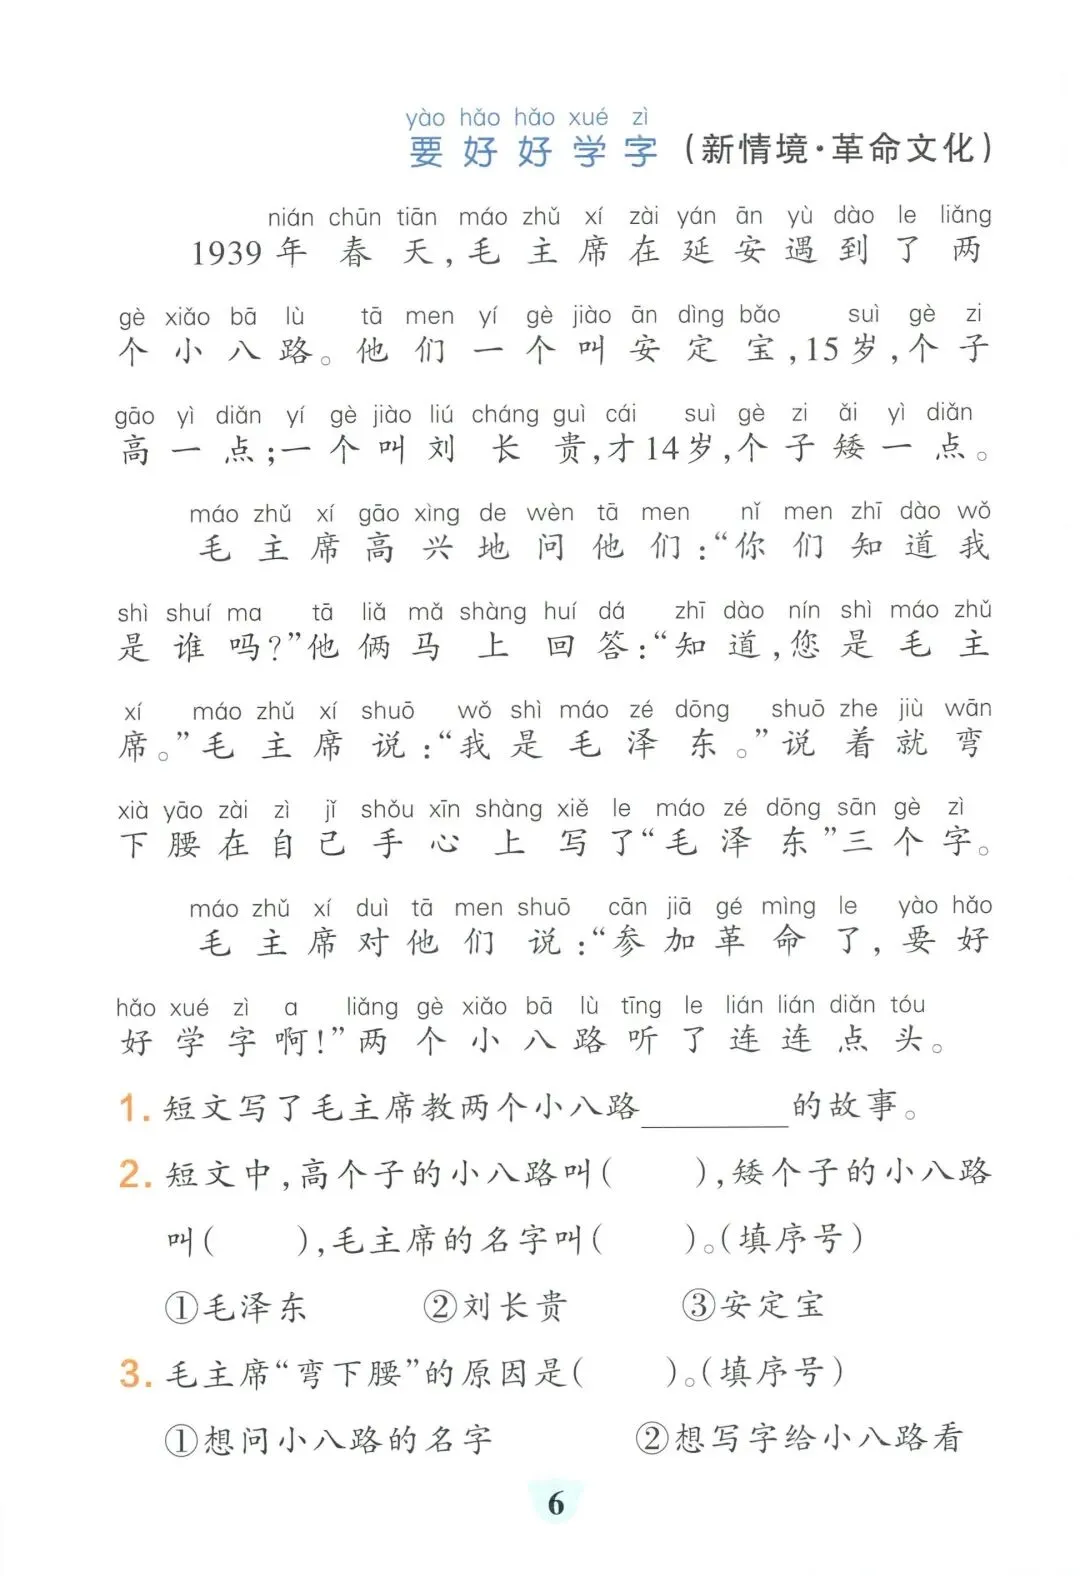 yào hǎo hǎo xué zì
要好好学字(新情境·革命文化)
nián chūn tiān máo zhǔ xí zài yán ān yù dào le liǎng
1939年春天,毛主席在延安遇到了两
gè xiǎo bā lù tā men yí gè jiào ān dìng bǎo suì gè zi
个小八路。他们一个叫安定宝,15岁,个子
gāo yì diǎn yí gè jiào liú cháng guì cái suì gè zi ǎi yì diǎn
高一点;一个叫刘长贵,才14岁,个子矮一点。
máo zhǔ xí gāo xìng de wèn tā men nǐ men zhī dào wǒ
毛主席高兴地问他们:“你们知道我
shì shuí ma tā liǎ mǎ shàng huí dá zhī dào nín shì máo zhǔ
是谁吗?”他俩马上回答:“知道,您是毛主
xí máo zhǔ xí shuō wǒ shì máo zé dōng shuō zhe jiù wān
席。”毛主席说:“我是毛泽东。”说着就弯
xià yāo zài zì jǐ shǒu xīn shàng xiě le máo zé dōng sān gè zì
下腰在自己手心上写了“毛泽东”三个字。
máo zhǔ xí duì tā men shuō cān jiā gé mìng le yào hǎo
毛主席对他们说:“参加革命了,要好
hǎo xué zì a liǎng gè xiǎo bā lù tīng le lián lián diǎn tóu
好学字啊!”两个小八路听了连连点头。
1.短文写了毛主席教两个小八路________的故事。
2.短文中,高个子的小八路叫(  ),矮个子的小八路
叫(  ),毛主席的名字叫(  )。(填序号)
①毛泽东 ②刘长贵 ③安定宝
3.毛主席“弯下腰”的原因是(  )。(填序号)
①想问小八路的名字 ②想写字给小八路看
6